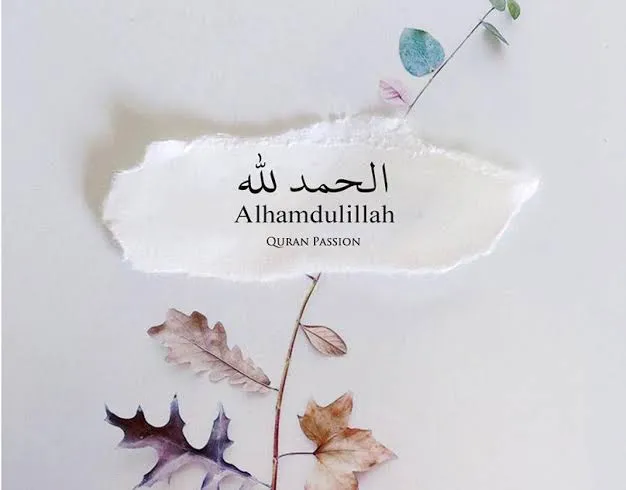 الحمد لله
Alhamdulillah
QURAN PASSION